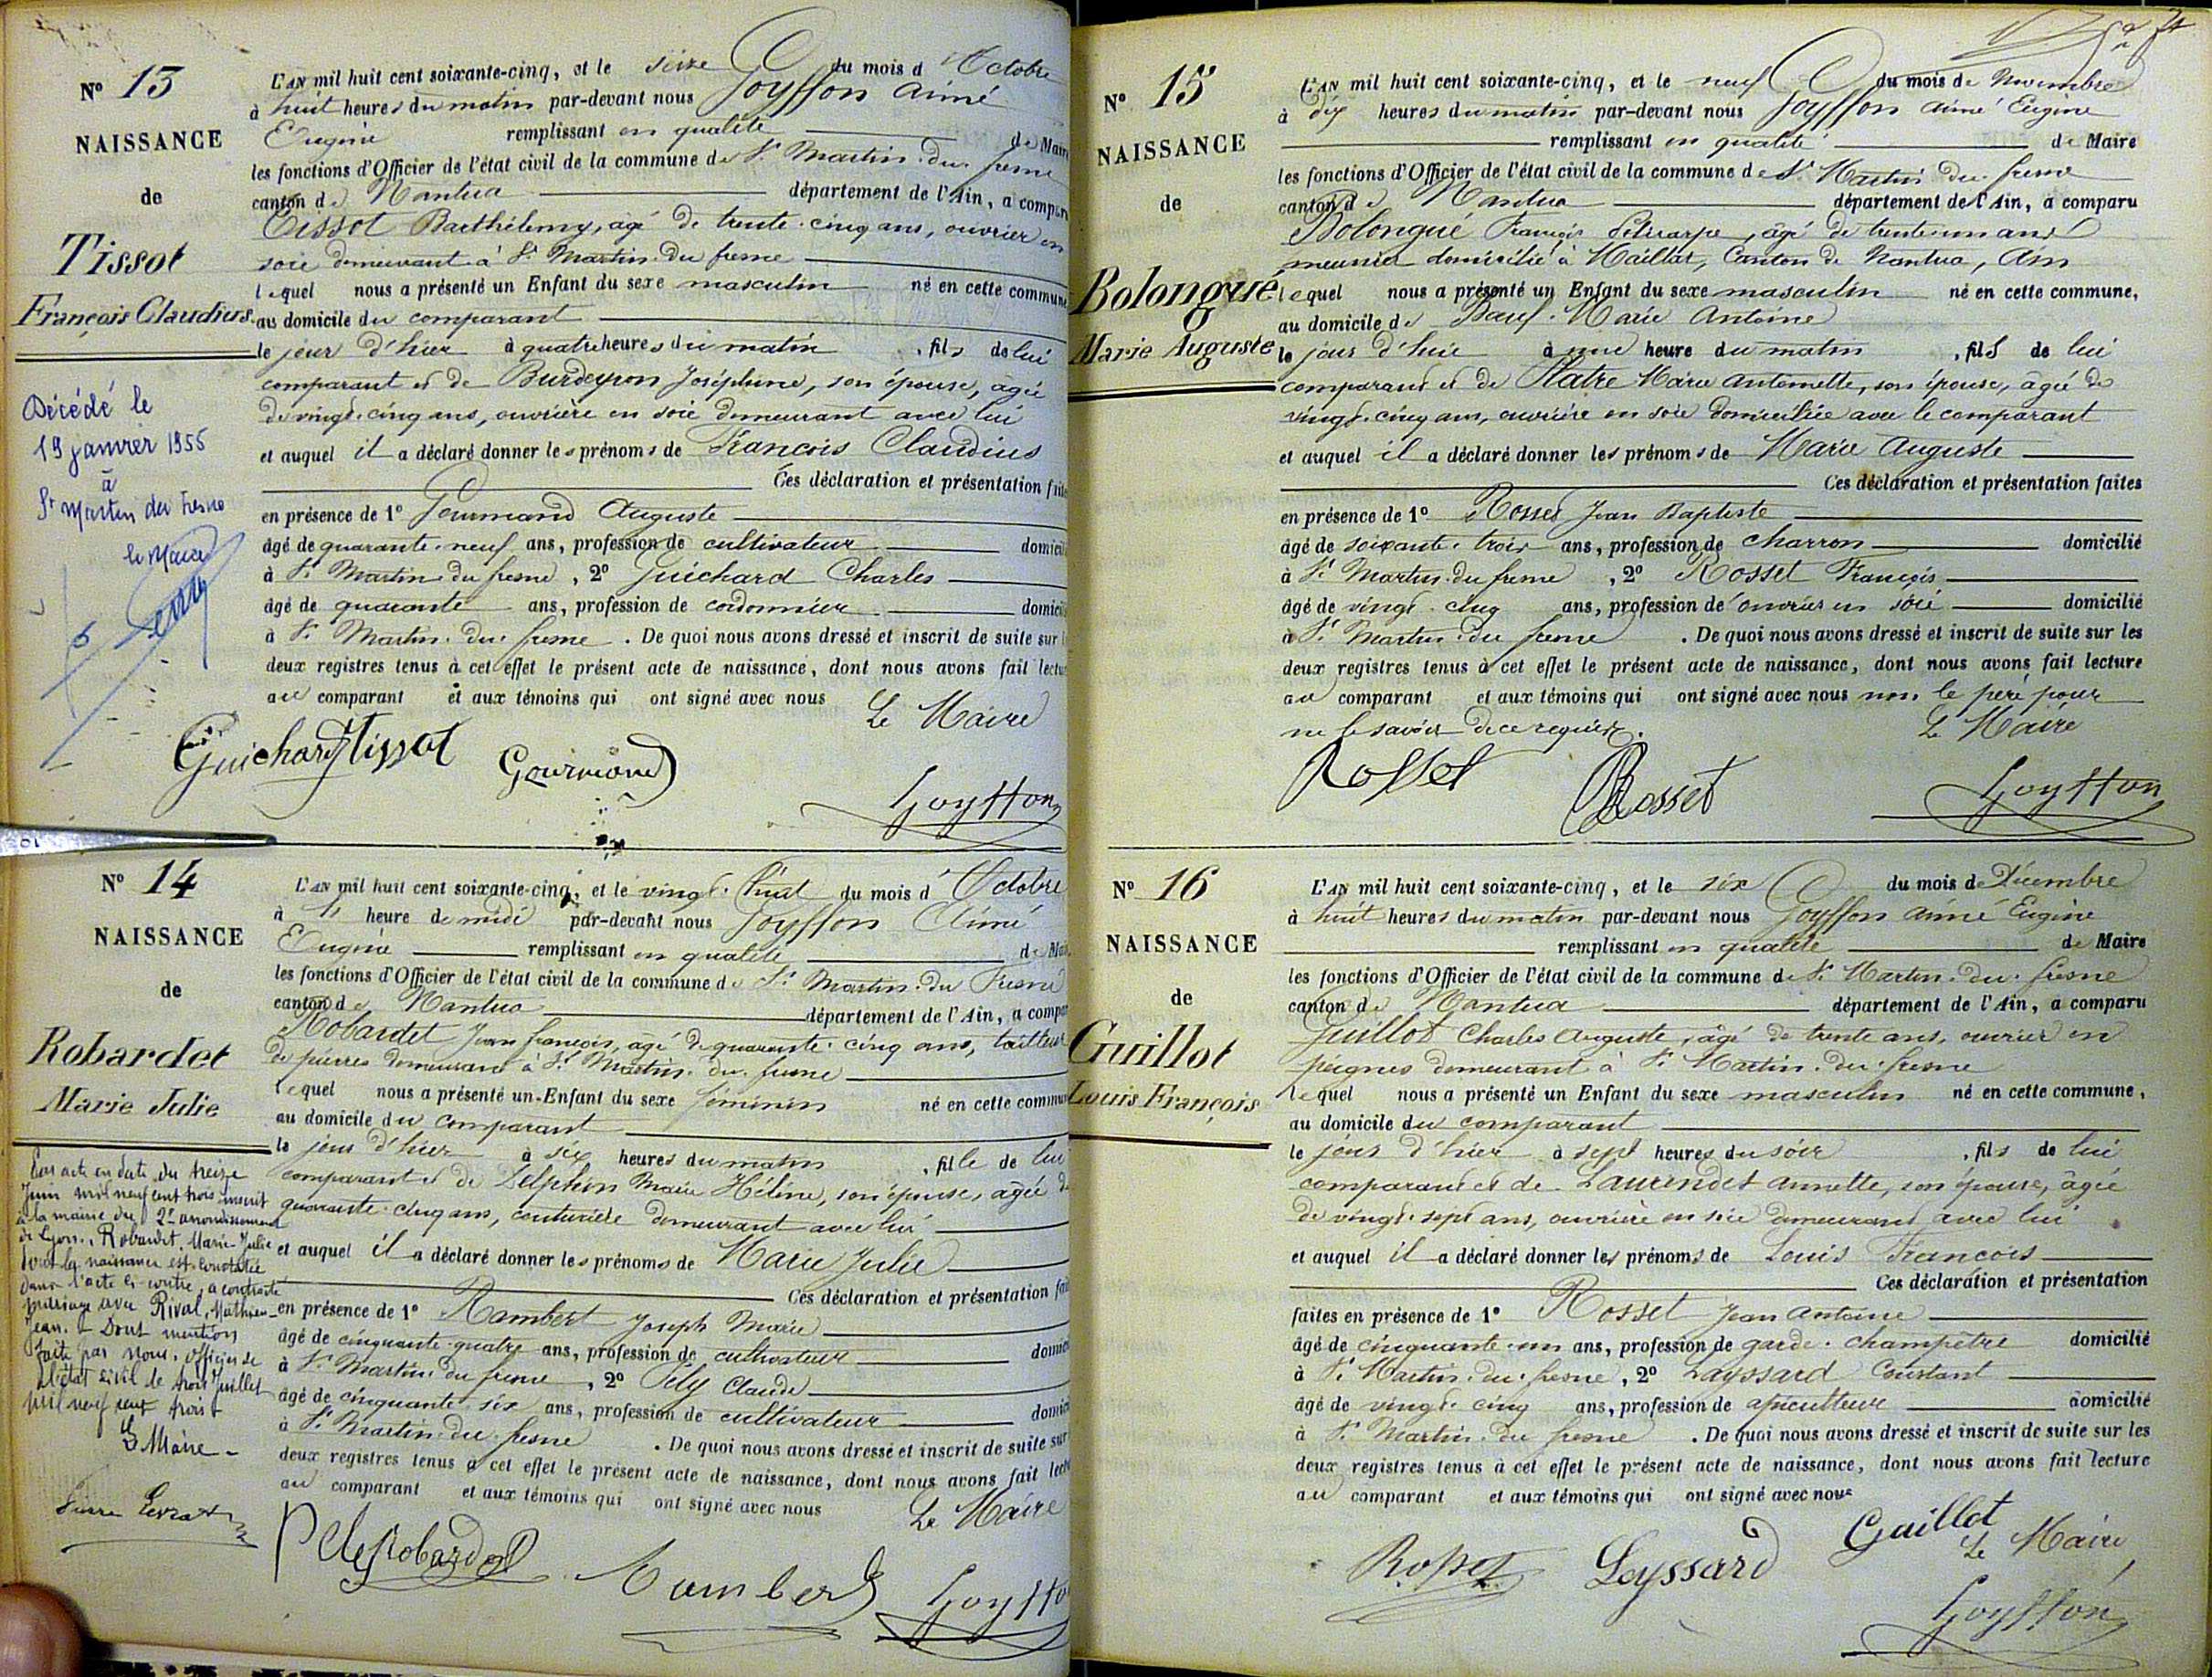 Nº 13
NAISSANCE
de
Tissot
François Claudius
Décédé le
19 janvier 1956
à
St Martin du Fresne
le Maire
L'AN mil huit cent soixante-cinq, et le seize du mois d'Octobre
à huit heures du matin par-devant nous Goyffon Aimé
Eugène remplissant en qualité de Maire
les fonctions d'Officier de l'état civil de la commune de St Martin-du-fresne
canton de Nantua département de l'Ain, a compar
Tissot Barthélemy, âgé de trente-cinq ans, ouvrier en
soie demeurant à St Martin-du-fresne
lequel nous a présenté un Enfant du sexe masculin né en cette commune
au domicile du comparant
le jour d'hier à quatre heures du matin, fils de lui
comparant et de Burdeyron Joséphine, son épouse, âgée
de vingt-cinq ans, ouvrière en soie demeurant avec lui
et auquel il a déclaré donner les prénoms de François Claudius
Ces déclaration et présentation faite
en présence de 1º Gourmand Auguste
âgé de quarante-neuf ans, profession de cultivateur domicil
à St Martin-du-fresne, 2º Guichard Charles
âgé de quarante ans, profession de cordonnier domicil
à St Martin-du-fresne. De quoi nous avons dressé et inscrit de suite sur l
deux registres tenus à cet effet le présent acte de naissance, dont nous avons fait lectu
au comparant et aux témoins qui ont signé avec nous
Le Maire
Guichard Tissot Gourmand
Goyffon
Nº 14
NAISSANCE
de
Robardet
Marie Julie
Par acte en date du treize
Juin mil neuf cent trois inscrit
à la mairie du 2e arrondissement
de Lyon, Robardet, Marie-Julie
dont la naissance est constatée
dans l'acte ci-contre, a contracté
mariage avec Rival, Mathieu-
Jean. Dont mention
faite par nous, officier de
l'état civil le trois Juillet
mil neuf cent trois
Le Maire
L'AN mil huit cent soixante-cinq, et le vingt-huit du mois d'Octobre
à heure de midi par-devant nous Goyffon Aimé
Eugène remplissant en qualité de Mai
les fonctions d'Officier de l'état civil de la commune de St Martin-du-Fresne
canton de Nantua département de l'Ain, a compar
Robardet Jean françois, âgé de quarante-cinq ans, tailleur
de pierres demeurant à St Martin-du-fresne
lequel nous a présenté un Enfant du sexe féminin né en cette commun
au domicile du comparant
le jour d'hier à six heures du matin, fille de lui
comparant et de Delphin Marie Héline, son épouse, âgée de
quarante-cinq ans, couturière demeurant avec lui
et auquel il a déclaré donner les prénoms de Marie Julie
Ces déclaration et présentation fai
en présence de 1º Rambert Joseph Marie
âgé de cinquante-quatre ans, profession de cultivateur domici
à St Martin-du-fresne, 2º Pely Claude
âgé de cinquante-six ans, profession de cultivateur domici
à St Martin-du-fresne. De quoi nous avons dressé et inscrit de suite sur
deux registres tenus à cet effet le présent acte de naissance, dont nous avons fait lectu
au comparant et aux témoins qui ont signé avec nous
Le Maire
Pely Robardet Rambert Goyffo
Nº 15
NAISSANCE
de
Bolongué
Marie Auguste
L'AN mil huit cent soixante-cinq, et le neuf du mois de Novembre
à dix heures du matin par-devant nous Goyffon Aimé Eugène
remplissant en qualité de Maire
les fonctions d'Officier de l'état civil de la commune de St Martin-du-fresne
canton de Nantua département de l'Ain, a comparu
Bolongué François, âgé de trente-un ans
meunier domicilié à Maillat, Canton de Nantua, Ain
lequel nous a présenté un Enfant du sexe masculin né en cette commune,
au domicile de Bœuf Marie Antoine
le jour d'hier à une heure du matin, fils de lui
comparant et de Platre Marie Antoinette, son épouse, âgée de
vingt-cinq ans, ouvrière en soie domiciliée avec le comparant
et auquel il a déclaré donner les prénoms de Marie Auguste
Ces déclaration et présentation faites
en présence de 1º Rosset Jean Baptiste
âgé de soixante-trois ans, profession de charron domicilié
à St Martin-du-fresne, 2º Rosset François
âgé de vingt-cinq ans, profession de ouvrier en soie domicilié
à St Martin-du-fresne. De quoi nous avons dressé et inscrit de suite sur les
deux registres tenus à cet effet le présent acte de naissance, dont nous avons fait lecture
au comparant et aux témoins qui ont signé avec nous non le père pour
ne le savoir de ce requis.
Le Maire
Rosset Rosset Goyffon
Nº 16
NAISSANCE
de
Guillot
Louis François
L'AN mil huit cent soixante-cinq, et le six du mois de Décembre
à huit heures du matin par-devant nous Goyffon Aimé Eugène
remplissant en qualité de Maire
les fonctions d'Officier de l'état civil de la commune de St Martin-du-fresne
canton de Nantua département de l'Ain, a comparu
Guillot Charles Auguste, âgé de trente ans, ouvrier en
peignes demeurant à St Martin-du-fresne
lequel nous a présenté un Enfant du sexe masculin né en cette commune,
au domicile du comparant
le jour d'hier à sept heures du soir, fils de lui
comparant et de Laurindet Annette, son épouse, âgée
de vingt-sept ans, ouvrière en soie demeurant avec lui
et auquel il a déclaré donner les prénoms de Louis François
Ces déclaration et présentation
faites en présence de 1º Rosset Jean Antoine
âgé de cinquante-un ans, profession de garde-champêtre domicilié
à St Martin-du-fresne, 2º Layssard Constant
âgé de vingt-cinq ans, profession de apiculteur domicilié
à St Martin-du-fresne. De quoi nous avons dressé et inscrit de suite sur les
deux registres tenus à cet effet le présent acte de naissance, dont nous avons fait lecture
au comparant et aux témoins qui ont signé avec nous
Guillot
Le Maire
Rosset Leyssard
Goyffon